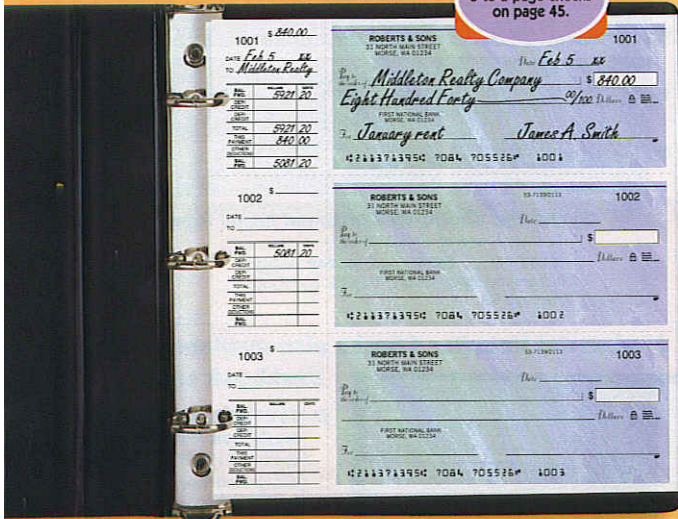 on page 45.
1001 $ 840.00
DATE Feb 5 xx
TO Middleton Realty
DOLLARS CENTS
BAL. FWD. 5921 20
DEPOSIT
CREDIT
TOTAL 5921 20
THIS PAYMENT 840 00
OTHER DEDUCTIONS
BAL. FWD. 5081 20
ROBERTS & SONS 1001
31 NORTH MAIN STREET
MORSE, WA 01234
Date Feb 5 xx
Pay to the order of Middleton Realty Company $ 840.00
Eight Hundred Forty 00/100 Dollars
FIRST NATIONAL BANK
MORSE, WA 01234
For January rent James A. Smith
⑆211371395⑆ 7084 705526⑈ 1001
1002 $
DATE
TO
DOLLARS CENTS
BAL. FWD. 5081 20
TOTAL
THIS PAYMENT
OTHER DEDUCTIONS
BAL. FWD.
ROBERTS & SONS 1002
31 NORTH MAIN STREET
MORSE, WA 01234
Date
Pay to the order of $
Dollars
FIRST NATIONAL BANK
MORSE, WA 01234
For
⑆211371395⑆ 7084 705526⑈ 1002
1003 $
DATE
TO
DOLLARS CENTS
BAL. FWD.
TOTAL
THIS PAYMENT
OTHER DEDUCTIONS
BAL. FWD.
ROBERTS & SONS 1003
31 NORTH MAIN STREET
MORSE, WA 01234
Date
Pay to the order of $
Dollars
FIRST NATIONAL BANK
MORSE, WA 01234
For
⑆211371395⑆ 7084 705526⑈ 1003